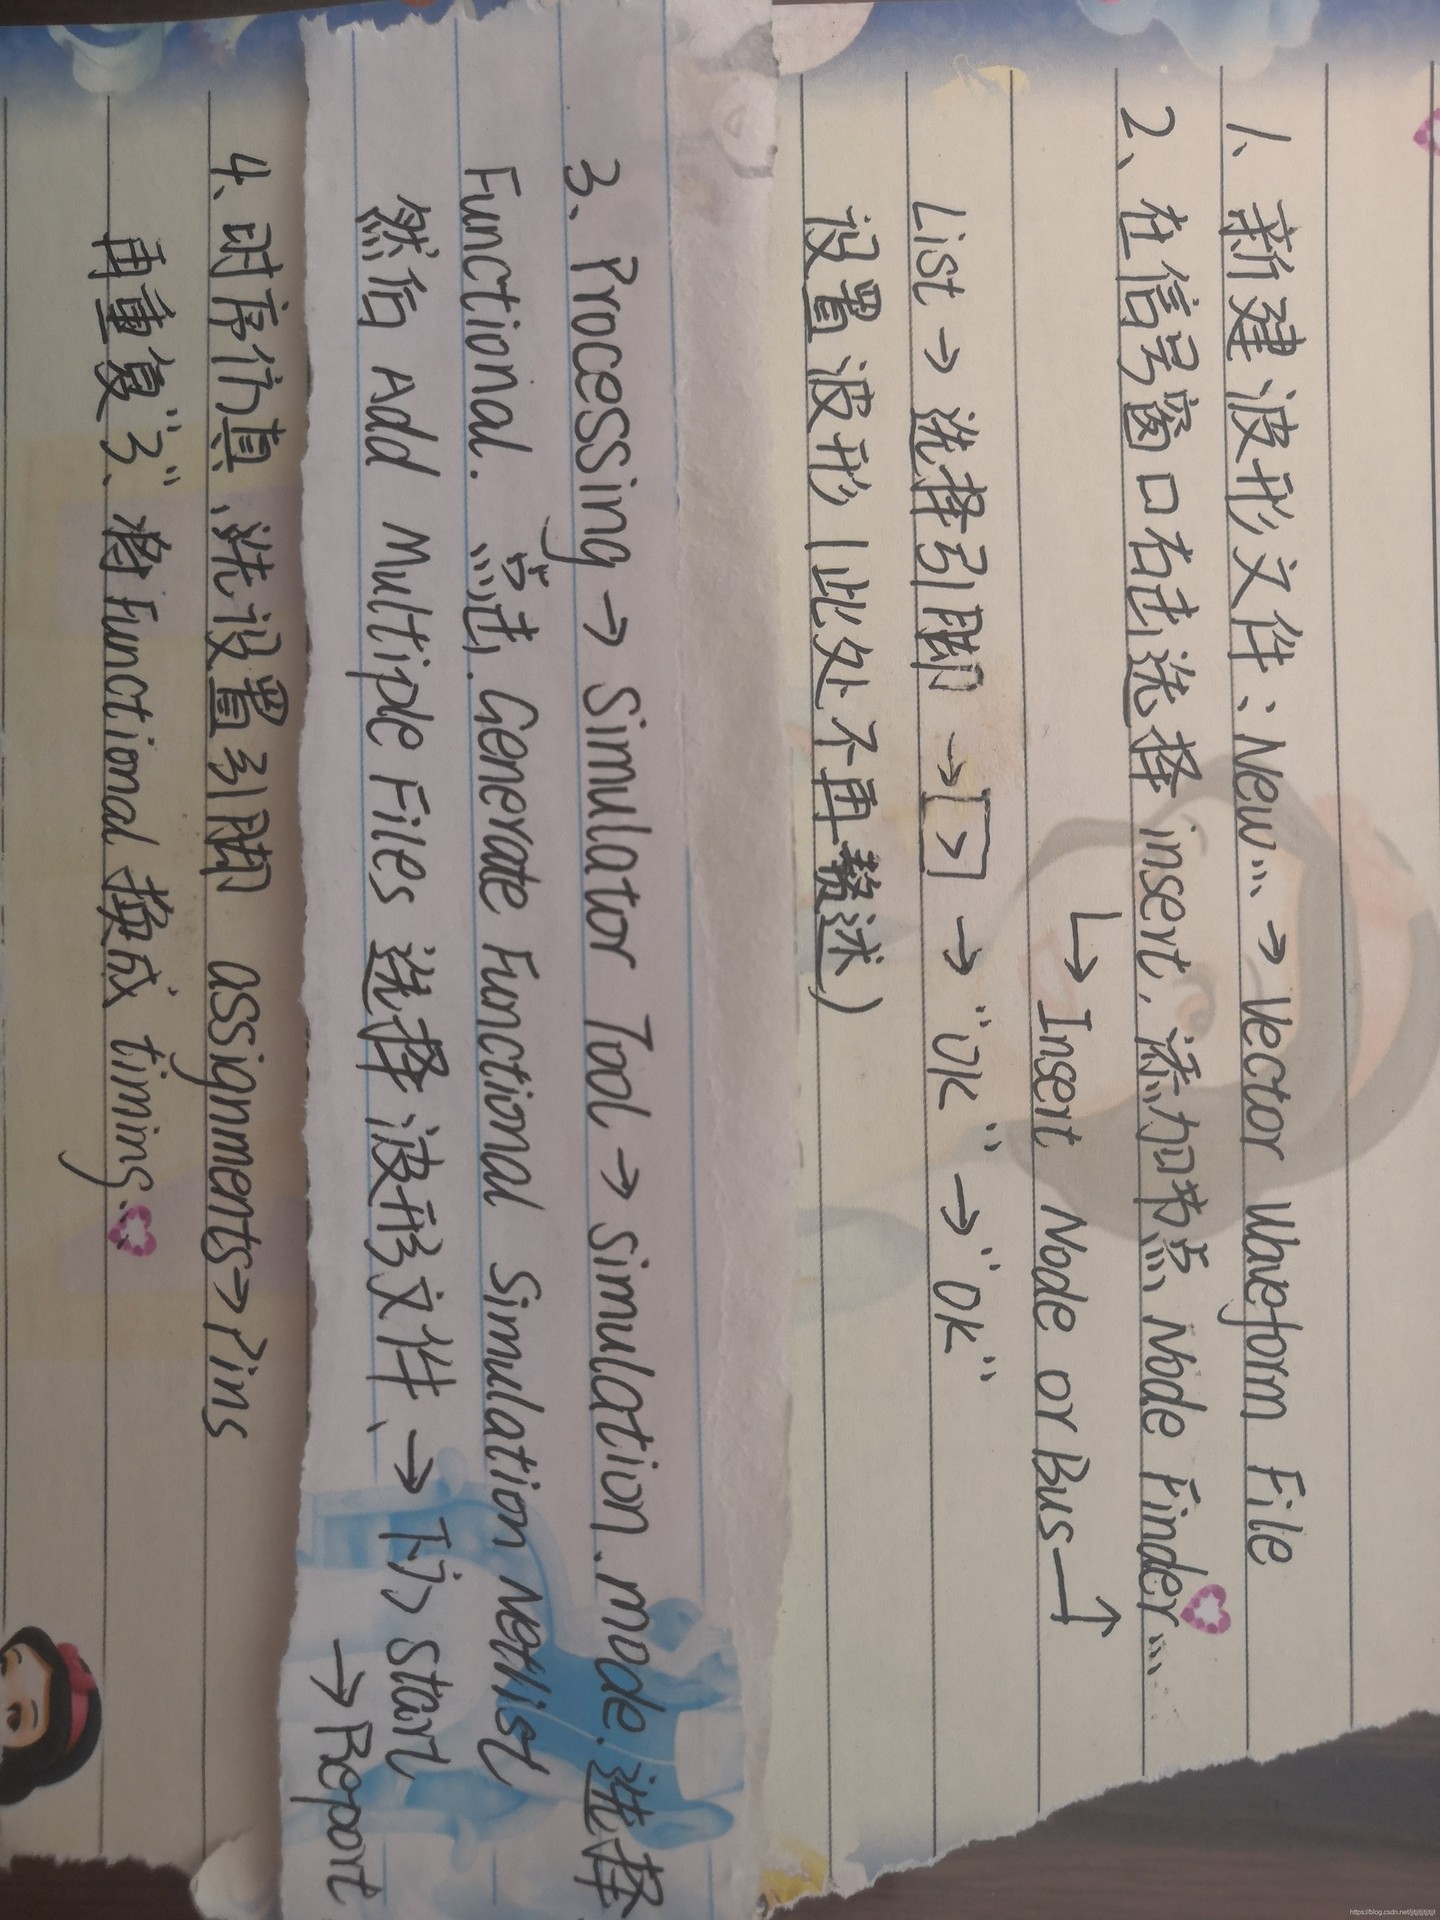 1、新建波形文件:New… → Vector Waveform File
2、在信号窗口右击选择 insert,添加节点 Node Finder…
↳ Insert Node or Bus
List → 选择引脚 → > → "OK" → "OK"
设置波形(此处不再赘述)
3、Processing → Simulator Tool → simulation mode.选择
Functional. 点击 Generate Functional Simulation Netlist
然后 Add Multiple Files 选择波形文件、→ 下方 start
→ Report
4、时序仿真,先设置引脚 assignments→Pins
再重复"3"、将Functional 换成 timing.
https://blog.csdn.net/jtjtjtjtjtjt